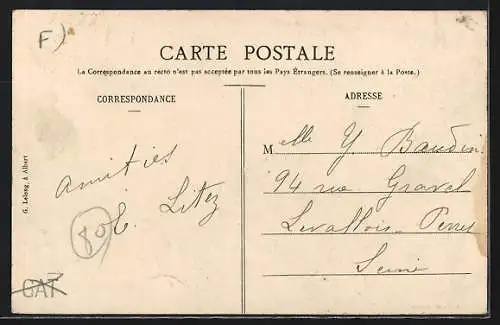 F)
CARTE POSTALE
La Correspondance au recto n'est pas acceptée par tous les Pays Étrangers. (Se renseigner à la Poste.)
CORRESPONDANCE
ADRESSE
G. Lelong, à Albert
Amitiés
Litez
80
GAT
Melle Y Baudin
94 rue Gravel
Levallois-Perret
Seine